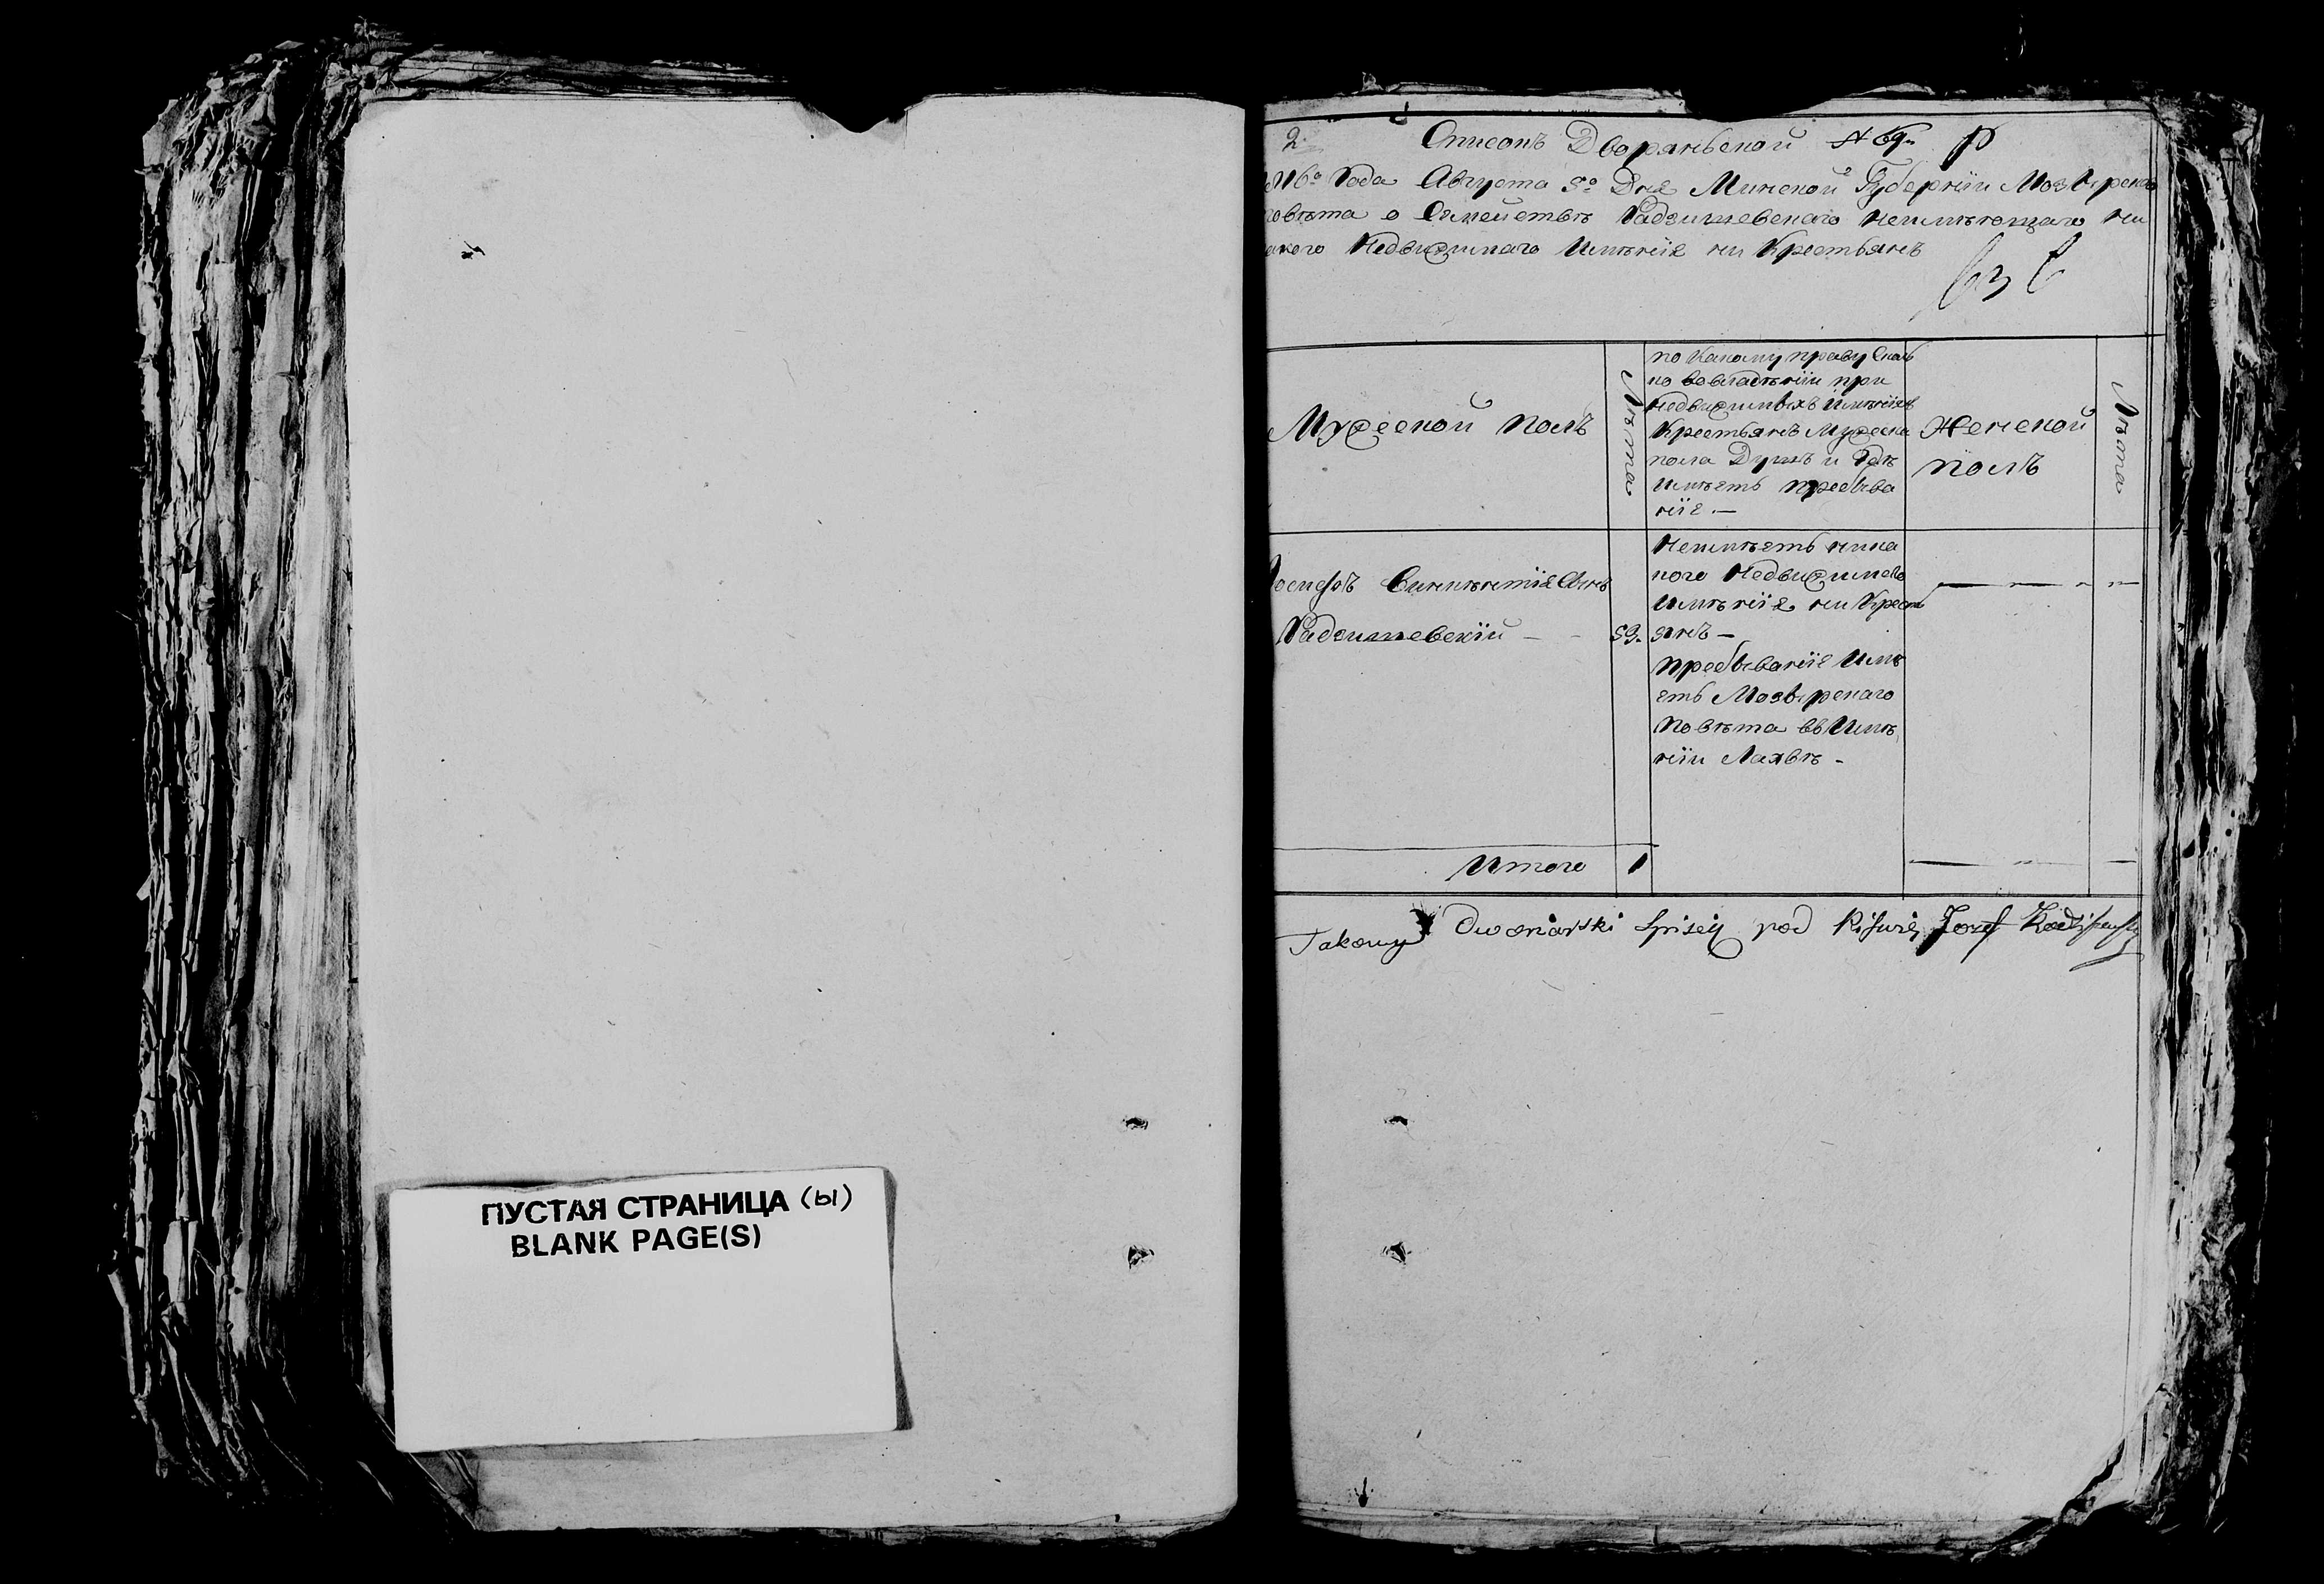 ПУСТАЯ СТРАНИЦА (ы)
BLANK PAGE(S)
2.
Списокъ Дворянъской № 69.
816го Года Августа 5го Дня Минской Губернiи Мозырскаго
повѣта о Семействѣ Радзишевскаго неимѣющаго ни
акого Недвижимаго Имѣнiя ни Крестьянъ
Мужеской полъ
Лѣта
по Какому праву Сколь
ко во владѣнiи при
Недвижимыхъ Имѣнiяхъ
Крестьянъ Мужеска
пола Душъ и Где
Имѣетъ пребыва
нiе. —
Женской
полъ
Лѣта
Iосифъ Викентiя Сынъ
Радзишевскiй — - 59.
Неимѣетъ ника
кого Недвижимаго
Имѣнiя ни Кресть
янъ —
пребыванiе Имѣ
етъ Мозырскаго
Повѣта въ Имѣ
нiи Лахвѣ -
Итого 1
Takowy Dworiański Spisek pod Pisuię Jozef Radziszewski